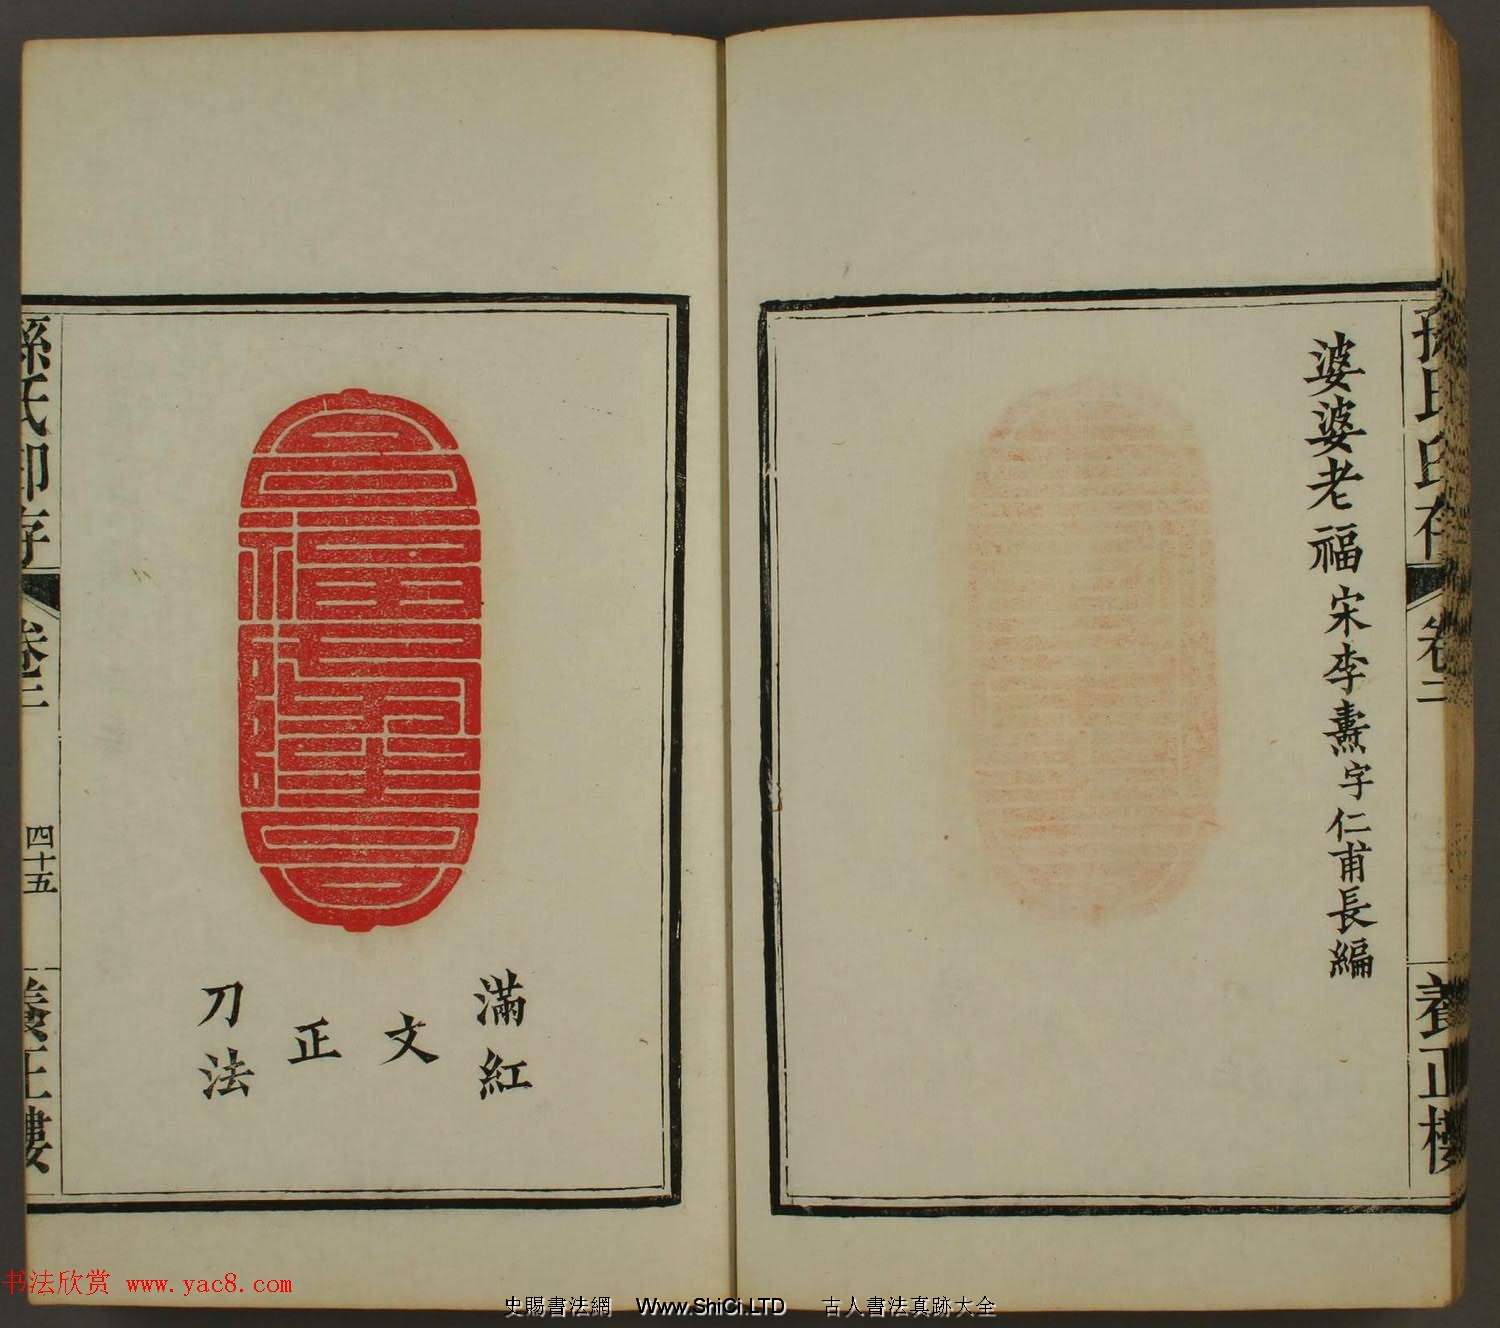 婆婆老福宋李燾字仁甫長編
孫氏印存
卷二
養正樓
滿紅
文
正
刀法
孫氏印存
卷二
四十五
養正樓
书法欣赏 www.yac8.com
史賜書法網 Www.ShiCi.LTD 古人書法真跡大全